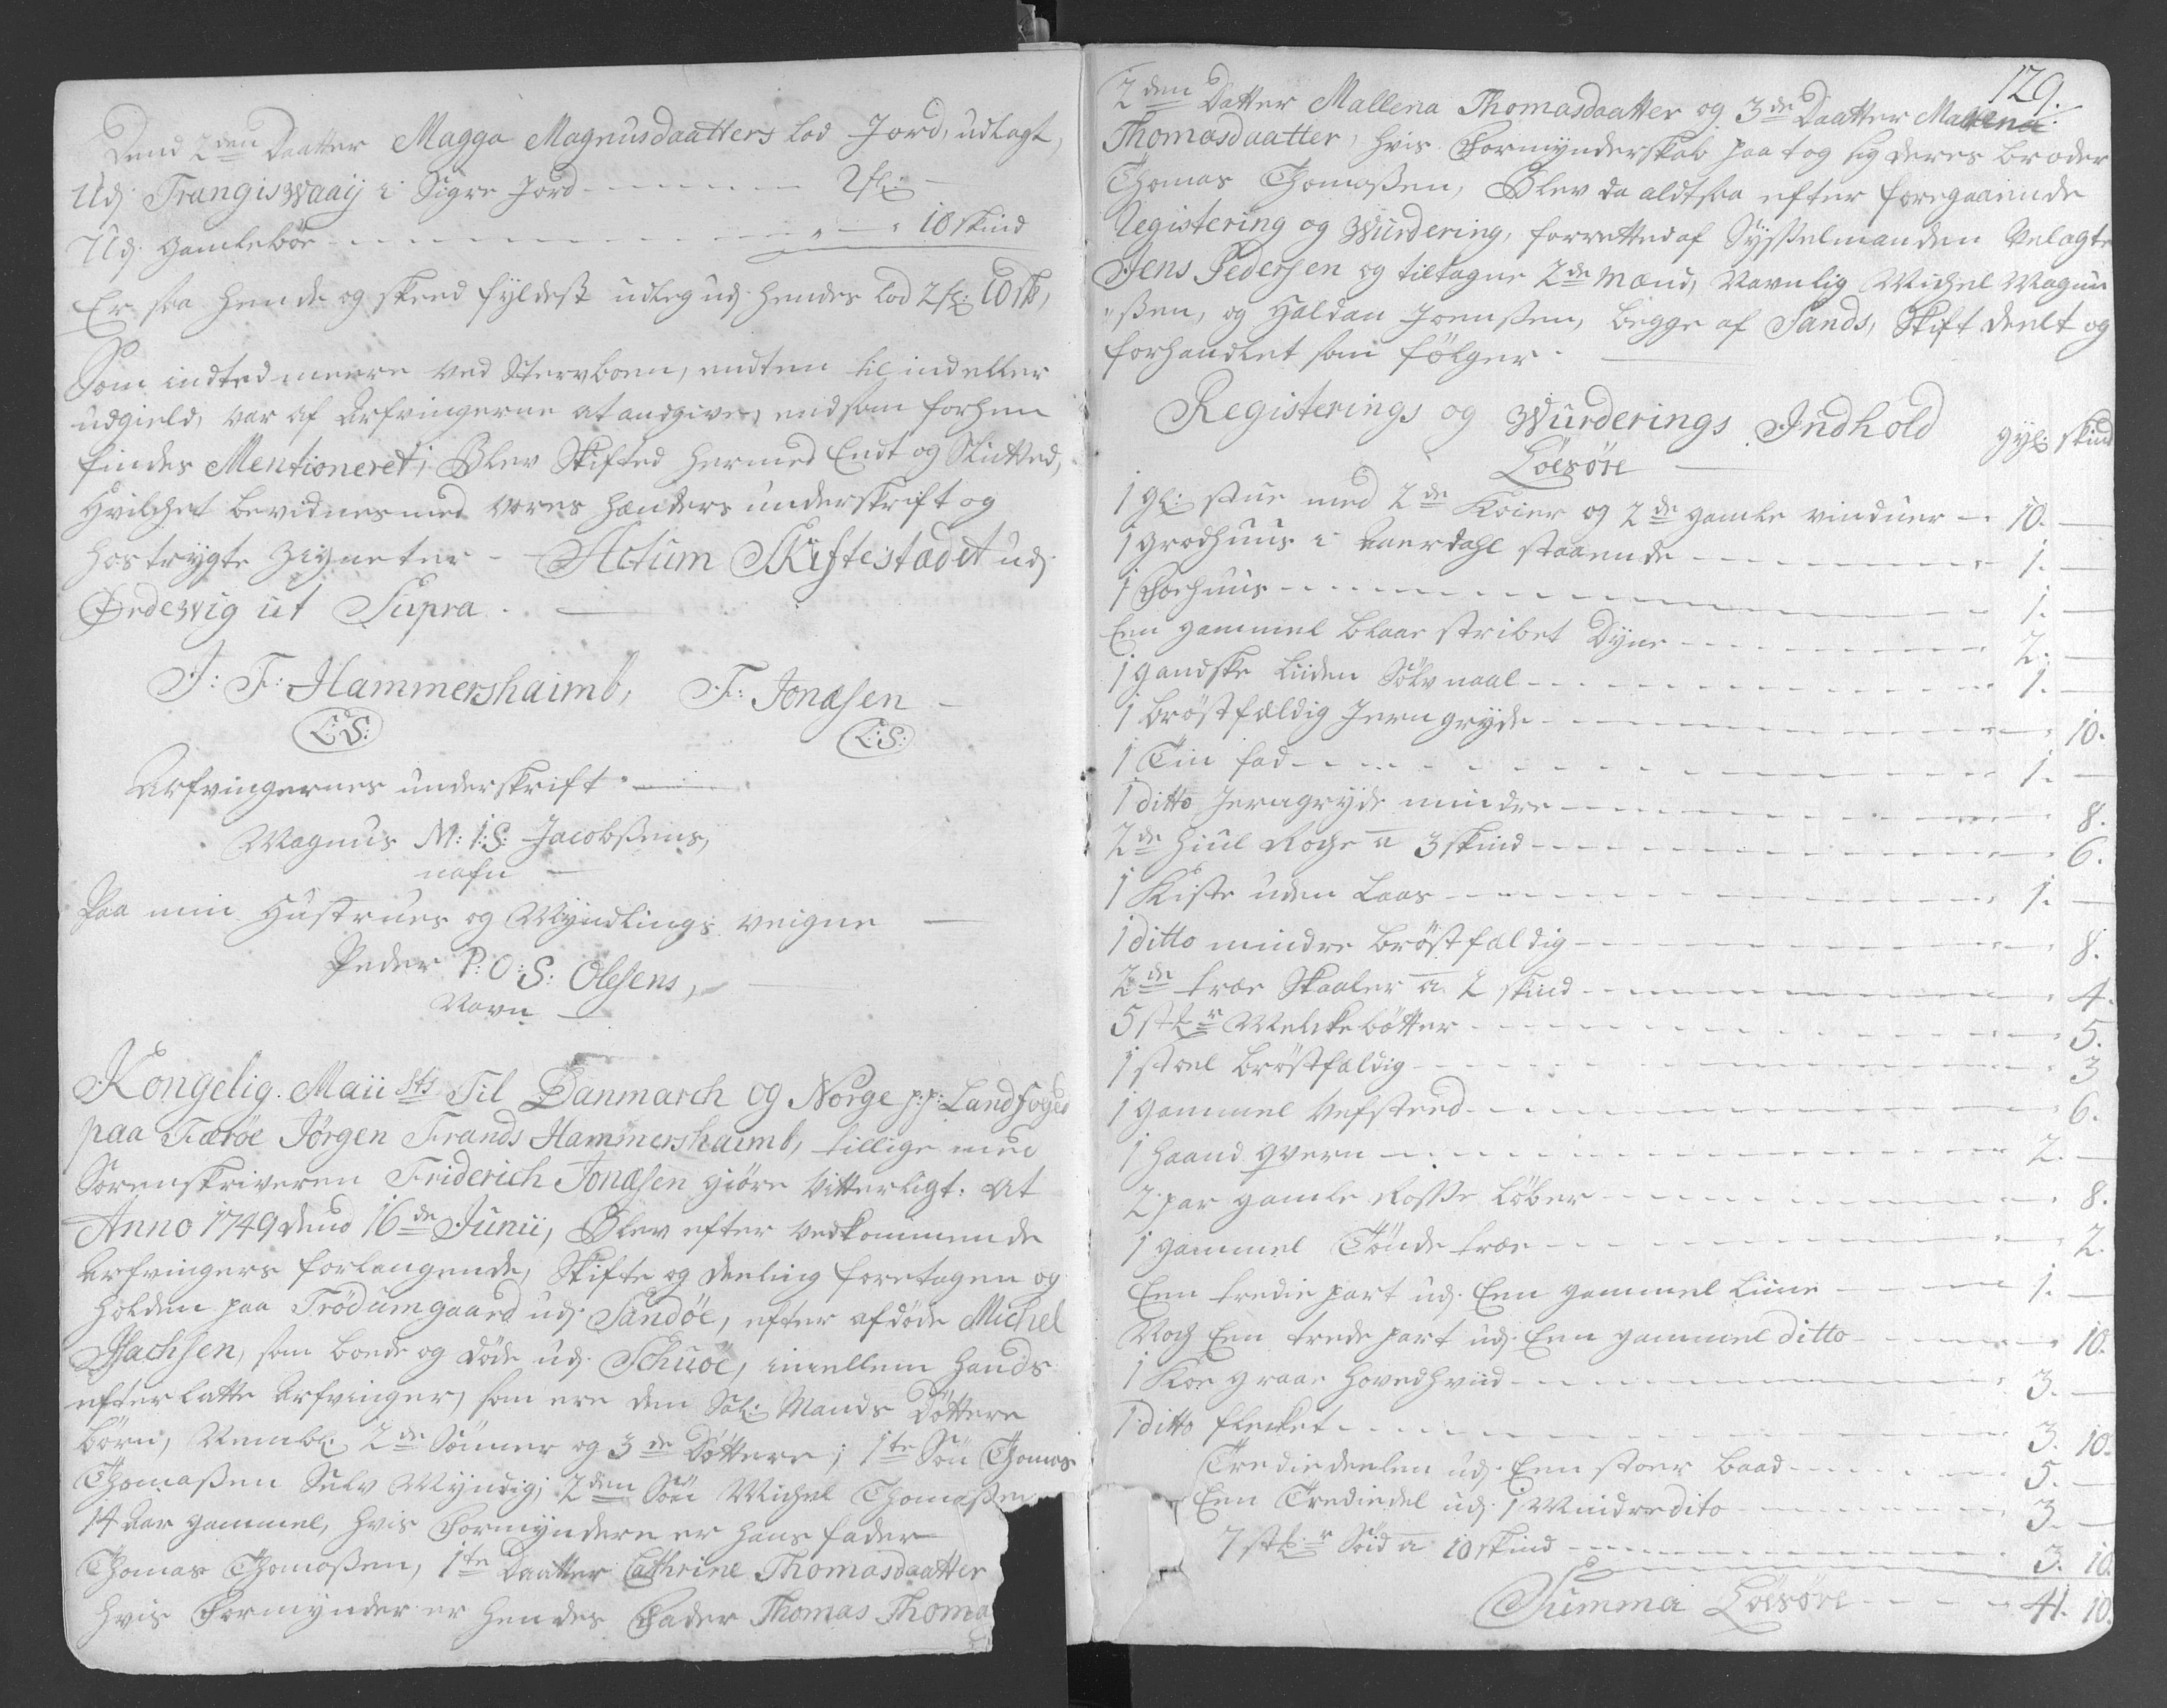 Dend 2den Daatter Magga Magnusdaatters Lod Jord, udlagt,
Udj Trangiswaaij i Sigre Jord - - - - - - 2 fl: -
Udj Gamlebøe - - - - - - - - - - 10 skind
Er saa hende og skeed fyldest udleg udj hendes Lod 2 fl: 10 sk,
Som indted meere ved Stervboen, endten til ind eller
udgield, var af Arfvingerne at andgive, end som forhen
findes Mentioneret; Blev Skifted hermed Endt og Slutted,
Hvilchet bevidnes med vores hænders underskrift og
hostrygte Zigneter - Actum Skiftestædet udj
Ørdewig ut Supra. -
J: F: Hammershaimb, F: Jonasen -
(L:S:) (L:S:)
Arfvingernes underskrift. -
Magnus M: I: S: Jacobßens,
nafn -
Paa min Hustrues og Myndlings veigne -
Peder P: O: S: Olesens,
Navn -
Kongelig. Maii sts Til Danmarch og Norge p: p: Landfoged
paa Færøe Jørgen Frands Hammershaimb, tillige med
Sorenskriveren Friderich Jonasen giøre Vitterligt: At
Anno 1749 dend 16de Junii, Blev efter vedkommende
Arfvingers forlangende, Skifte og deeling foretagen og
holden paa Trödumgaard udj Sandöe, efter afdøde Michel
Isachsen, som boede og døde udj Schuöe, imellem hands
efterlatte Arfvinger, som ere den Sal: Mands Döttere
börn, Nembl: 2de Sönner og 3de Döttere; 1te Sön Thomas
Thomaßen Selv Myndig; 2den Sön Michel Thomaßen
14 Aar gammel, hvis Formyndere er hans fader
Thomas Thomaßen, 1te Daatter Cathrine Thomasdaatter
hvis Formynder er hendes Fader Thomas Thoma
129.
2den Datter Mallena Thomasdaatter og 3de Daatter Mallena
Thomasdaatter, hvis Formynderskab paa tog sig deres broder
Thomas Thomaßen, Blev da aldtsaa efter foregaaende
Registering og Wurdering, forretted af Syßelmanden Velagte
Jens Pedersen og tiltagne 2de Mænd, Navnlig Michel Magnu
"ßen, og Haldan Joenßen, begge af Sands, Skift deelt og
forhandlet som følger. -
Registerings og Wurderings Indhold gyl: skind
Löesöre -
1 gl: stue med 2de Koier og 2de gamle vinduer - 10. -
1 Grodhuus i Kaerdahl staaende - - - - 1. -
1 Forhuus - - - - - - 1. -
Een gammel blaae stribet Dyne - - - - 2. -
1 gandske liiden Sölv naal - - - - 1. -
1 bröstfældig Jerngryde - - - - 10.
1 Tin fad - - - - 1. -
1 ditto Jerngryde mindre - - - - 8.
2de Hiul Roche a 3 skind - - - - 6.
1 Kiste uden Laas - - - - 1. -
1 ditto mindre bröstfæeldig - - - - 8.
2de træe Skaaler a 2 skind - - - - 4.
5 stkr Melckebötter - - - - 5.
1 stoel bröstfældig - - - - 3
1 gammel Vefsteed - - - - 6.
1 Haand qvern - - - - 2. -
2 par gamle Roße Löber - - - - 8.
1 gammel Tönde træe - - - - 2.
Een tredie part udj Een gammel Liine - - - 1. -
Noch Een trede part udj Een gammel ditto - - - 10.
1 Koe graae hovedhviid - - - - 3. -
1 ditto flecket - - - - 3. 10.
Trediedeelen udj Een stoer baad - - - - 5. -
Een Trediedel udj 1 Mindre dito - - - - 3. -
7 stkr Söid a 10 skind - - - - 3. 10.
Summa Löesöre - - - - 41. 10.